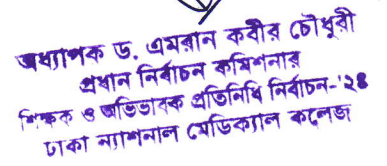 অধ্যাপক ড. এমরান কবীর চৌধুরী
প্রধান নির্বাচন কমিশনার
শিক্ষক ও অভিভাবক প্রতিনিধি নির্বাচন-'২৪
ঢাকা ন্যাশনাল মেডিক্যাল কলেজ